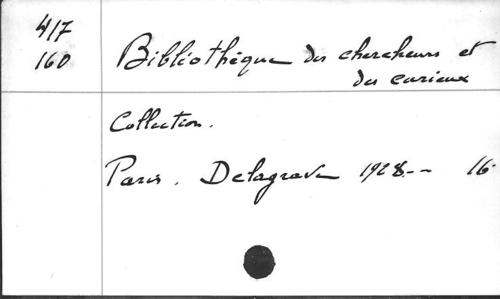 417
160
Bibliothèque des chercheurs et
des curieux
Collection.
Paris. Delagrave 1928-- 16°